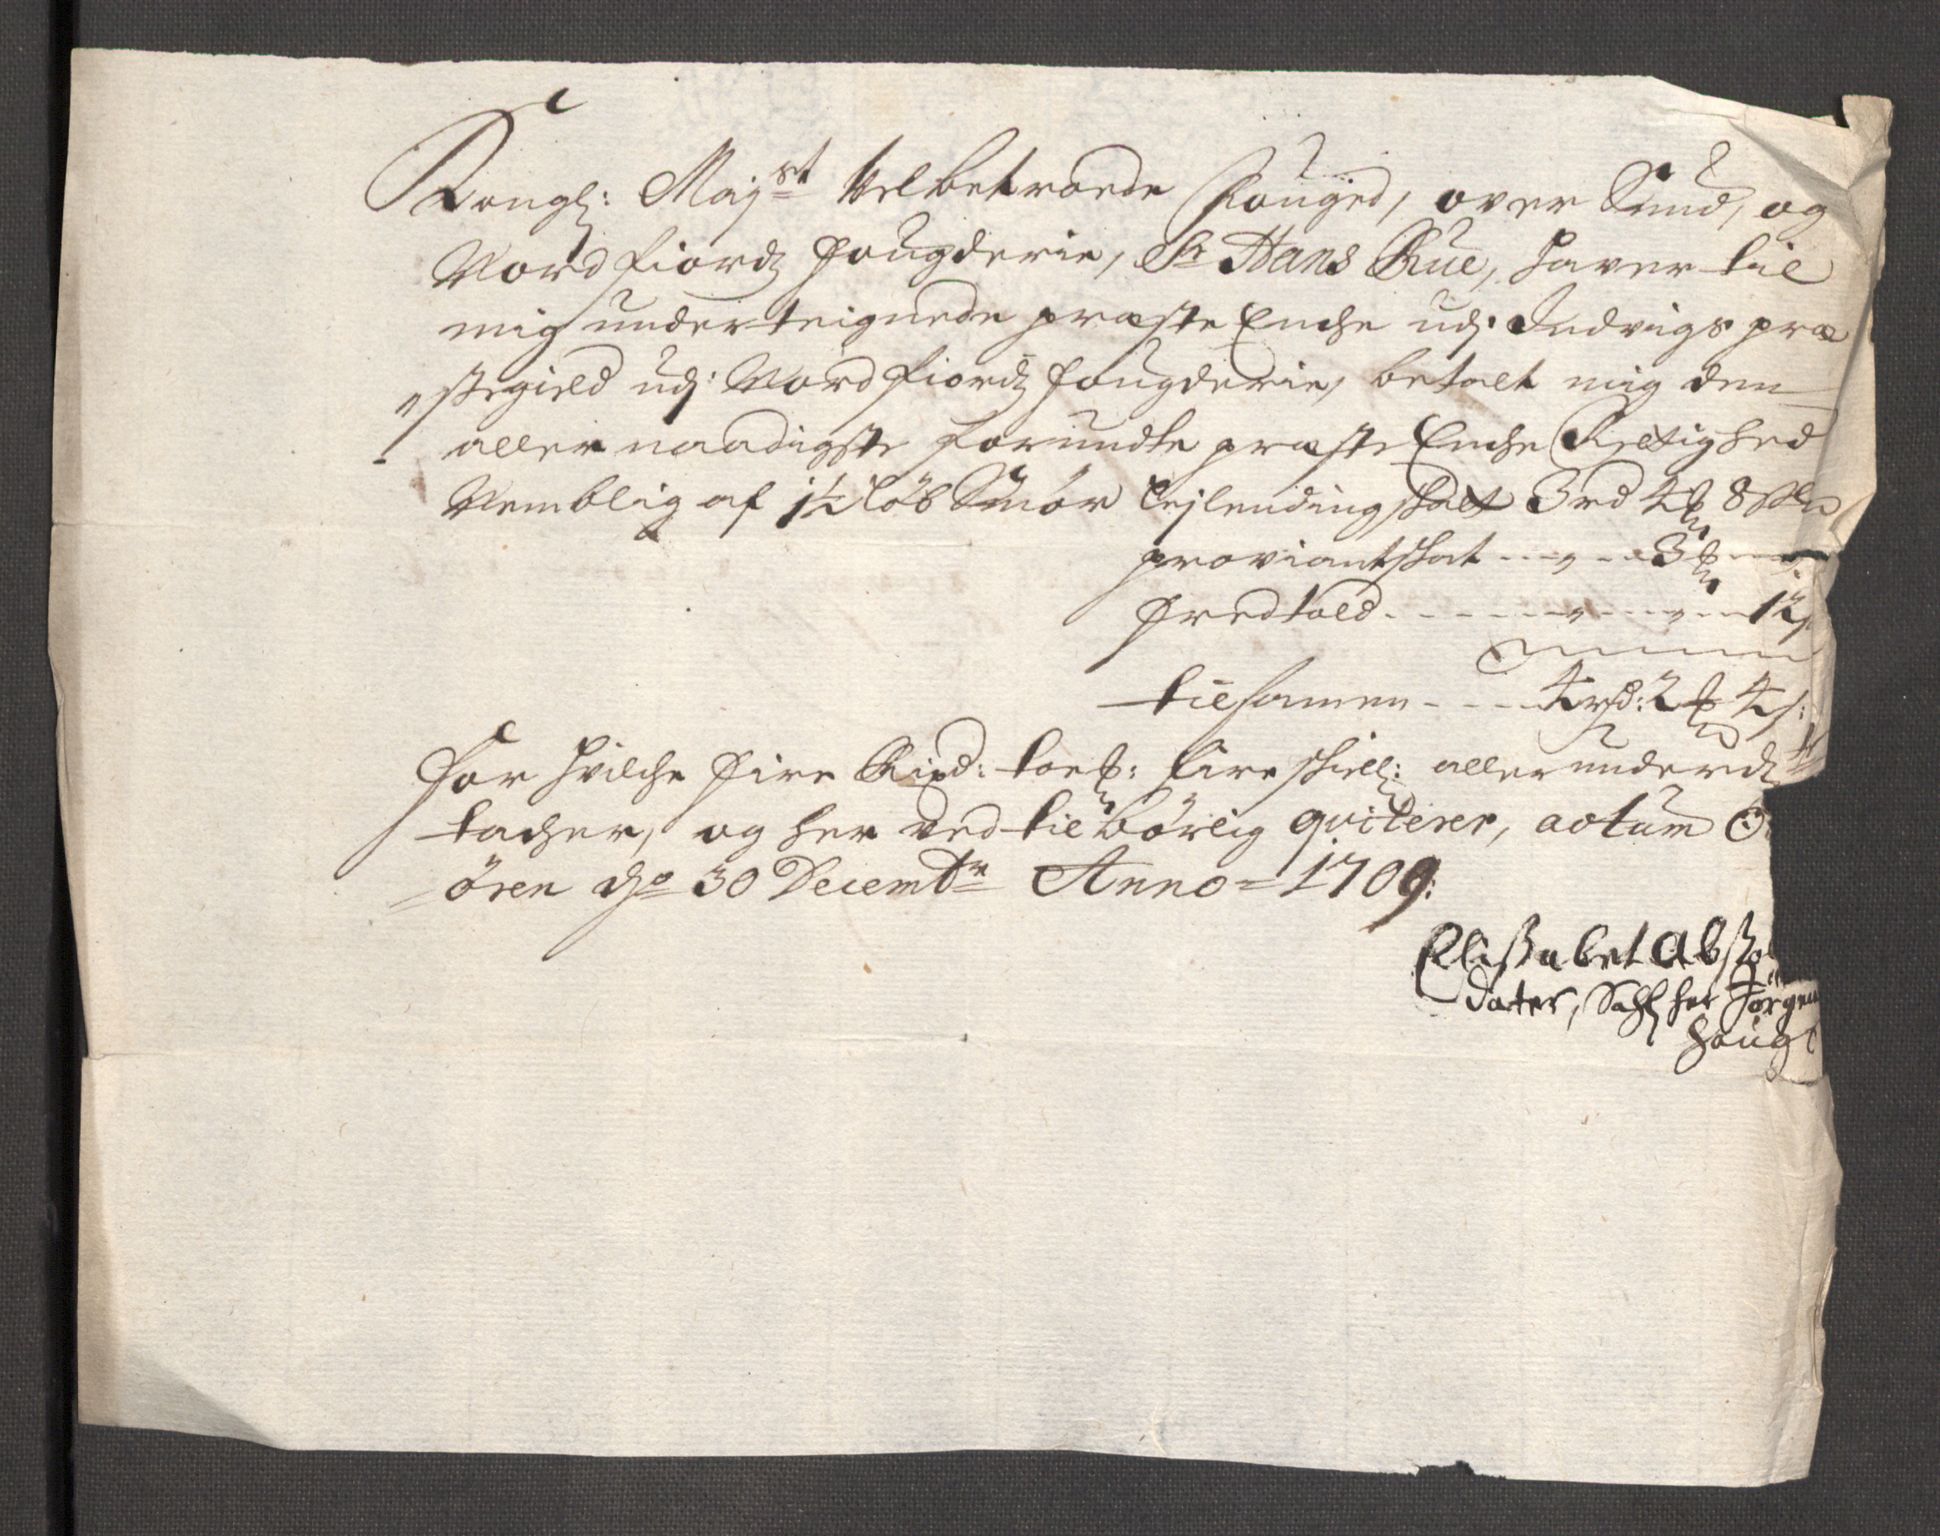 Kongl: Majst Velbetroede Fouged, over Sund, og
Nordfiordz fougderie, Sr Hans Rue, haver til
mig underteignede præste Enche udj Indvigs præ
stegield udj Nordfiordz fougderie, betalt mig den
aller naadigste forundte præste Enche Rettighed
Nemblig af 1½ löb Smör Lejlending skatt 3rd 4 8
proviantskat --- 3
fredtold ------ 12
tilsamen --- 4rd: 2 4
For hvilche fire Rixd: toe fire skill: allerunderd
tacher, og her ved tilbörlig qviterer, actum
ören dho 30 Decembr Anno 1709:
Elissabet abs
dater, Sahl her Jörgen
haug